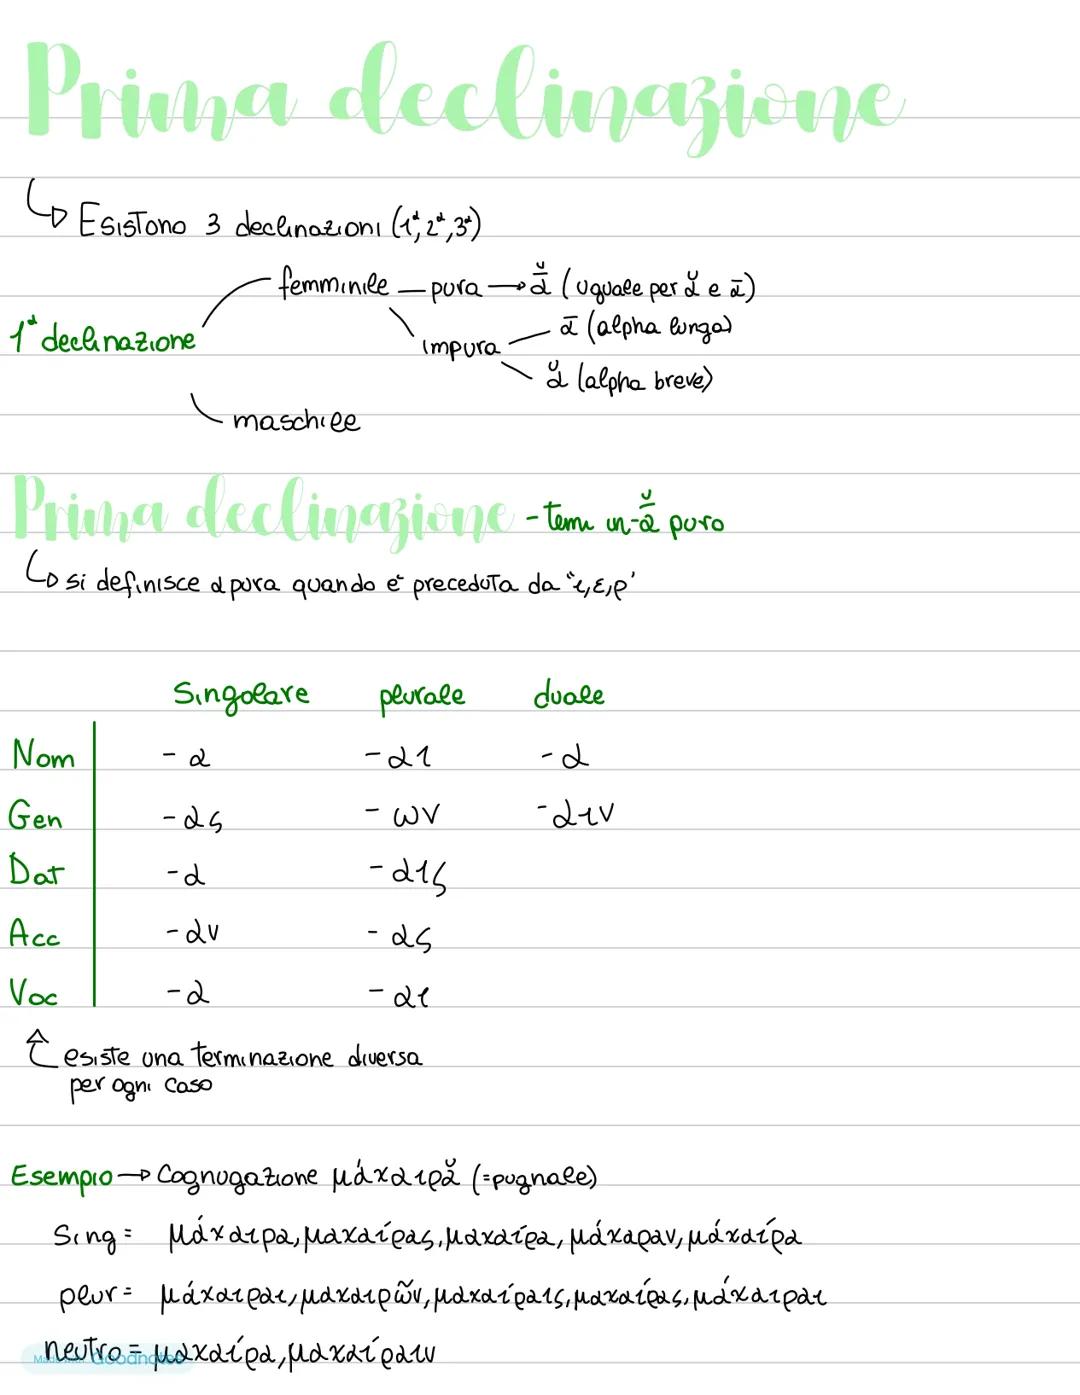 Prima declinazione
↳ Esistono 3 declinazioni (1ª, 2ª, 3ª)
femminile — pura → ᾱ̆ (uguale per ᾰ e ᾱ)
1ª declinazione
impura
ᾱ (alpha lunga)
ᾰ (alpha breve)
maschile
Prima declinazione - temi in -ᾱ̆ puro
↳ si definisce α pura quando è preceduta da "ι,ε,ρ'
Singolare plurale duale
Nom -α -αι -α
Gen -ας -ων -αιν
Dat -α -αις
Acc -αν -ας
Voc -α -αι
↑ esiste una terminazione diversa
per ogni caso
Esempio → Cognugazione μάχαιρᾰ (=pugnale)
Sing = μάχαιρα, μαχαίρας, μαχαίρα, μάχαραν, μάχαίρα
plur = μάχαιραι, μαχαιρῶν, μαχαίραις, μαχαίρας, μάχαιραι
neutro = μαχαίρα, μαχαίραιν
Made with Goodnotes